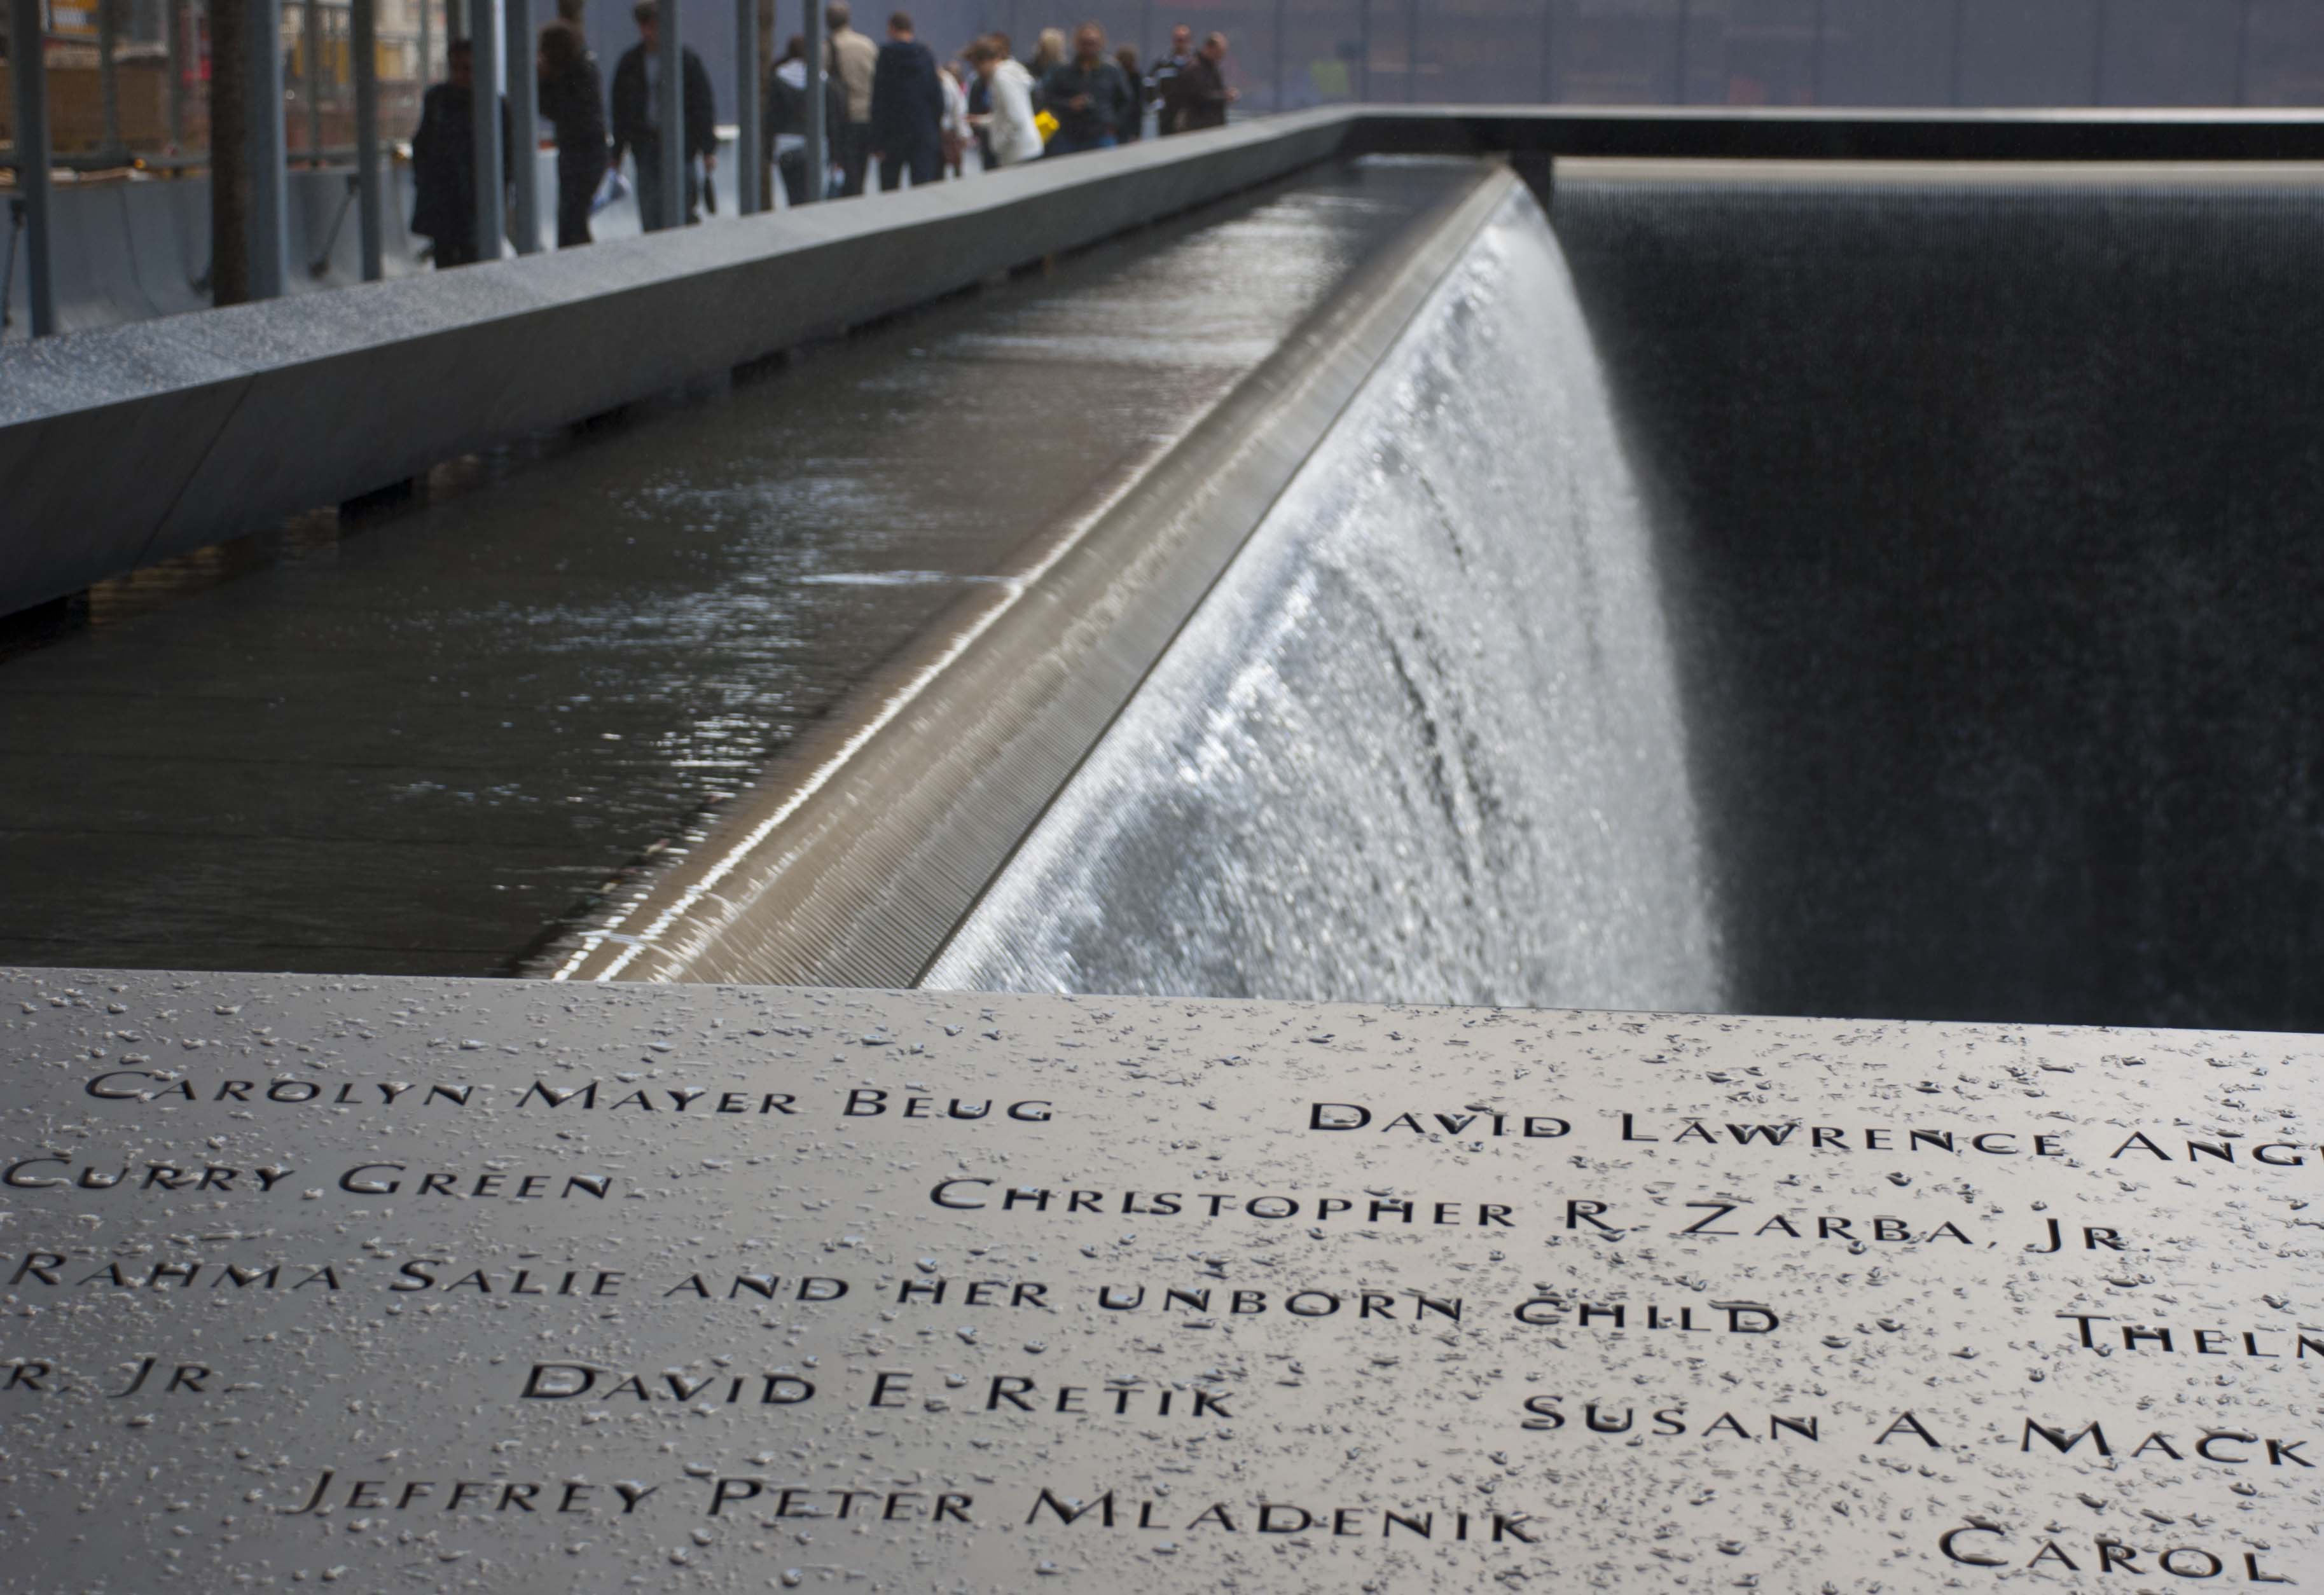 Carolyn Mayer Beug David Lawrence
Curry Green Christopher R. Zarba, Jr.
Rahma Salie and her unborn child
R, Jr. David E. Retik Susan A. Mack
Jeffrey Peter Mladenik Carol